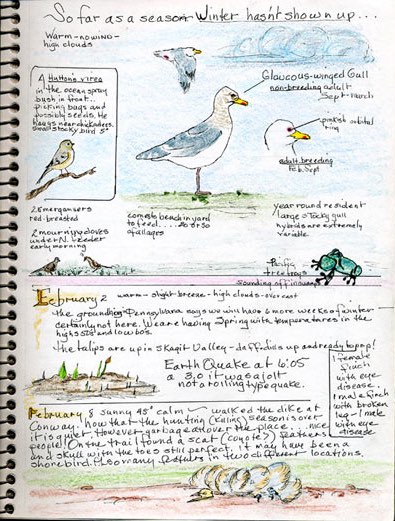 So far as a season Winter hasn't shown up...
Warm - no wind -
high clouds
A Hutton's vireo
in the ocean spray
bush in front...
picking bugs and
possibly seeds. He
hangs near chickadees.
small stocky bird 5"
Glaucous-winged Gull
non-breeding adult
Sept - March
pinkish orbital
ring
adult breeding
Feb. Sept
25 mergansers
red-breasted
2 mourning doves
under N. feeder
early morning
comes to beach in yard
to feed.... 20 or so
of all ages
year round resident
large stocky gull
hybrids are extremely
variable.
Pacific
tree frogs
sounding off in
February 2 warm - slight breeze - high clouds - over cast
the groundhog Pennsylvania says we will have 6 more weeks of winter -
certainly not here. We are having Spring with temperatures in the
high 50s and low 60s.
the tulips are up in Skagit Valley - daffodils up and ready to pop!
Earth Quake at 6:05
a 3.0 it was a jolt
not a rolling type quake.
1 female
finch
with eye
disease.
1 male finch
with broken
leg - 1 male
with eye
disease
February 8 sunny 45° calm walked the dike at
Conway. now that the hunting (killing) season is over
it is quiet However garbage all over the place... nice
people. On the trail found a scat (coyote?) feathers
and skull with the toes still perfect. it may have been a
shorebird. Also many in two different locations.